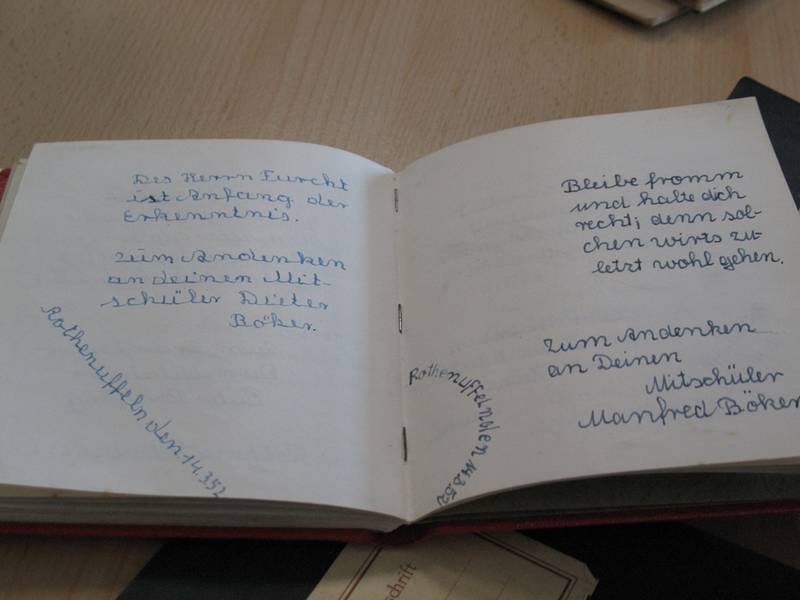 Des Herrn Furcht
ist Anfang der
Erkenntnis.
Zum Andenken
an deinen Mit-
schüler Dieter
Böker.
Rothenuffeln den 14.3.52
Bleibe fromm
und halte dich
recht; denn sol-
chen wirts zu-
letzt wohl gehen.
Zum Andenken
an Deinen
Mitschüler
Manfred Böker
Rothenuffeln den 14.3.52
schrift